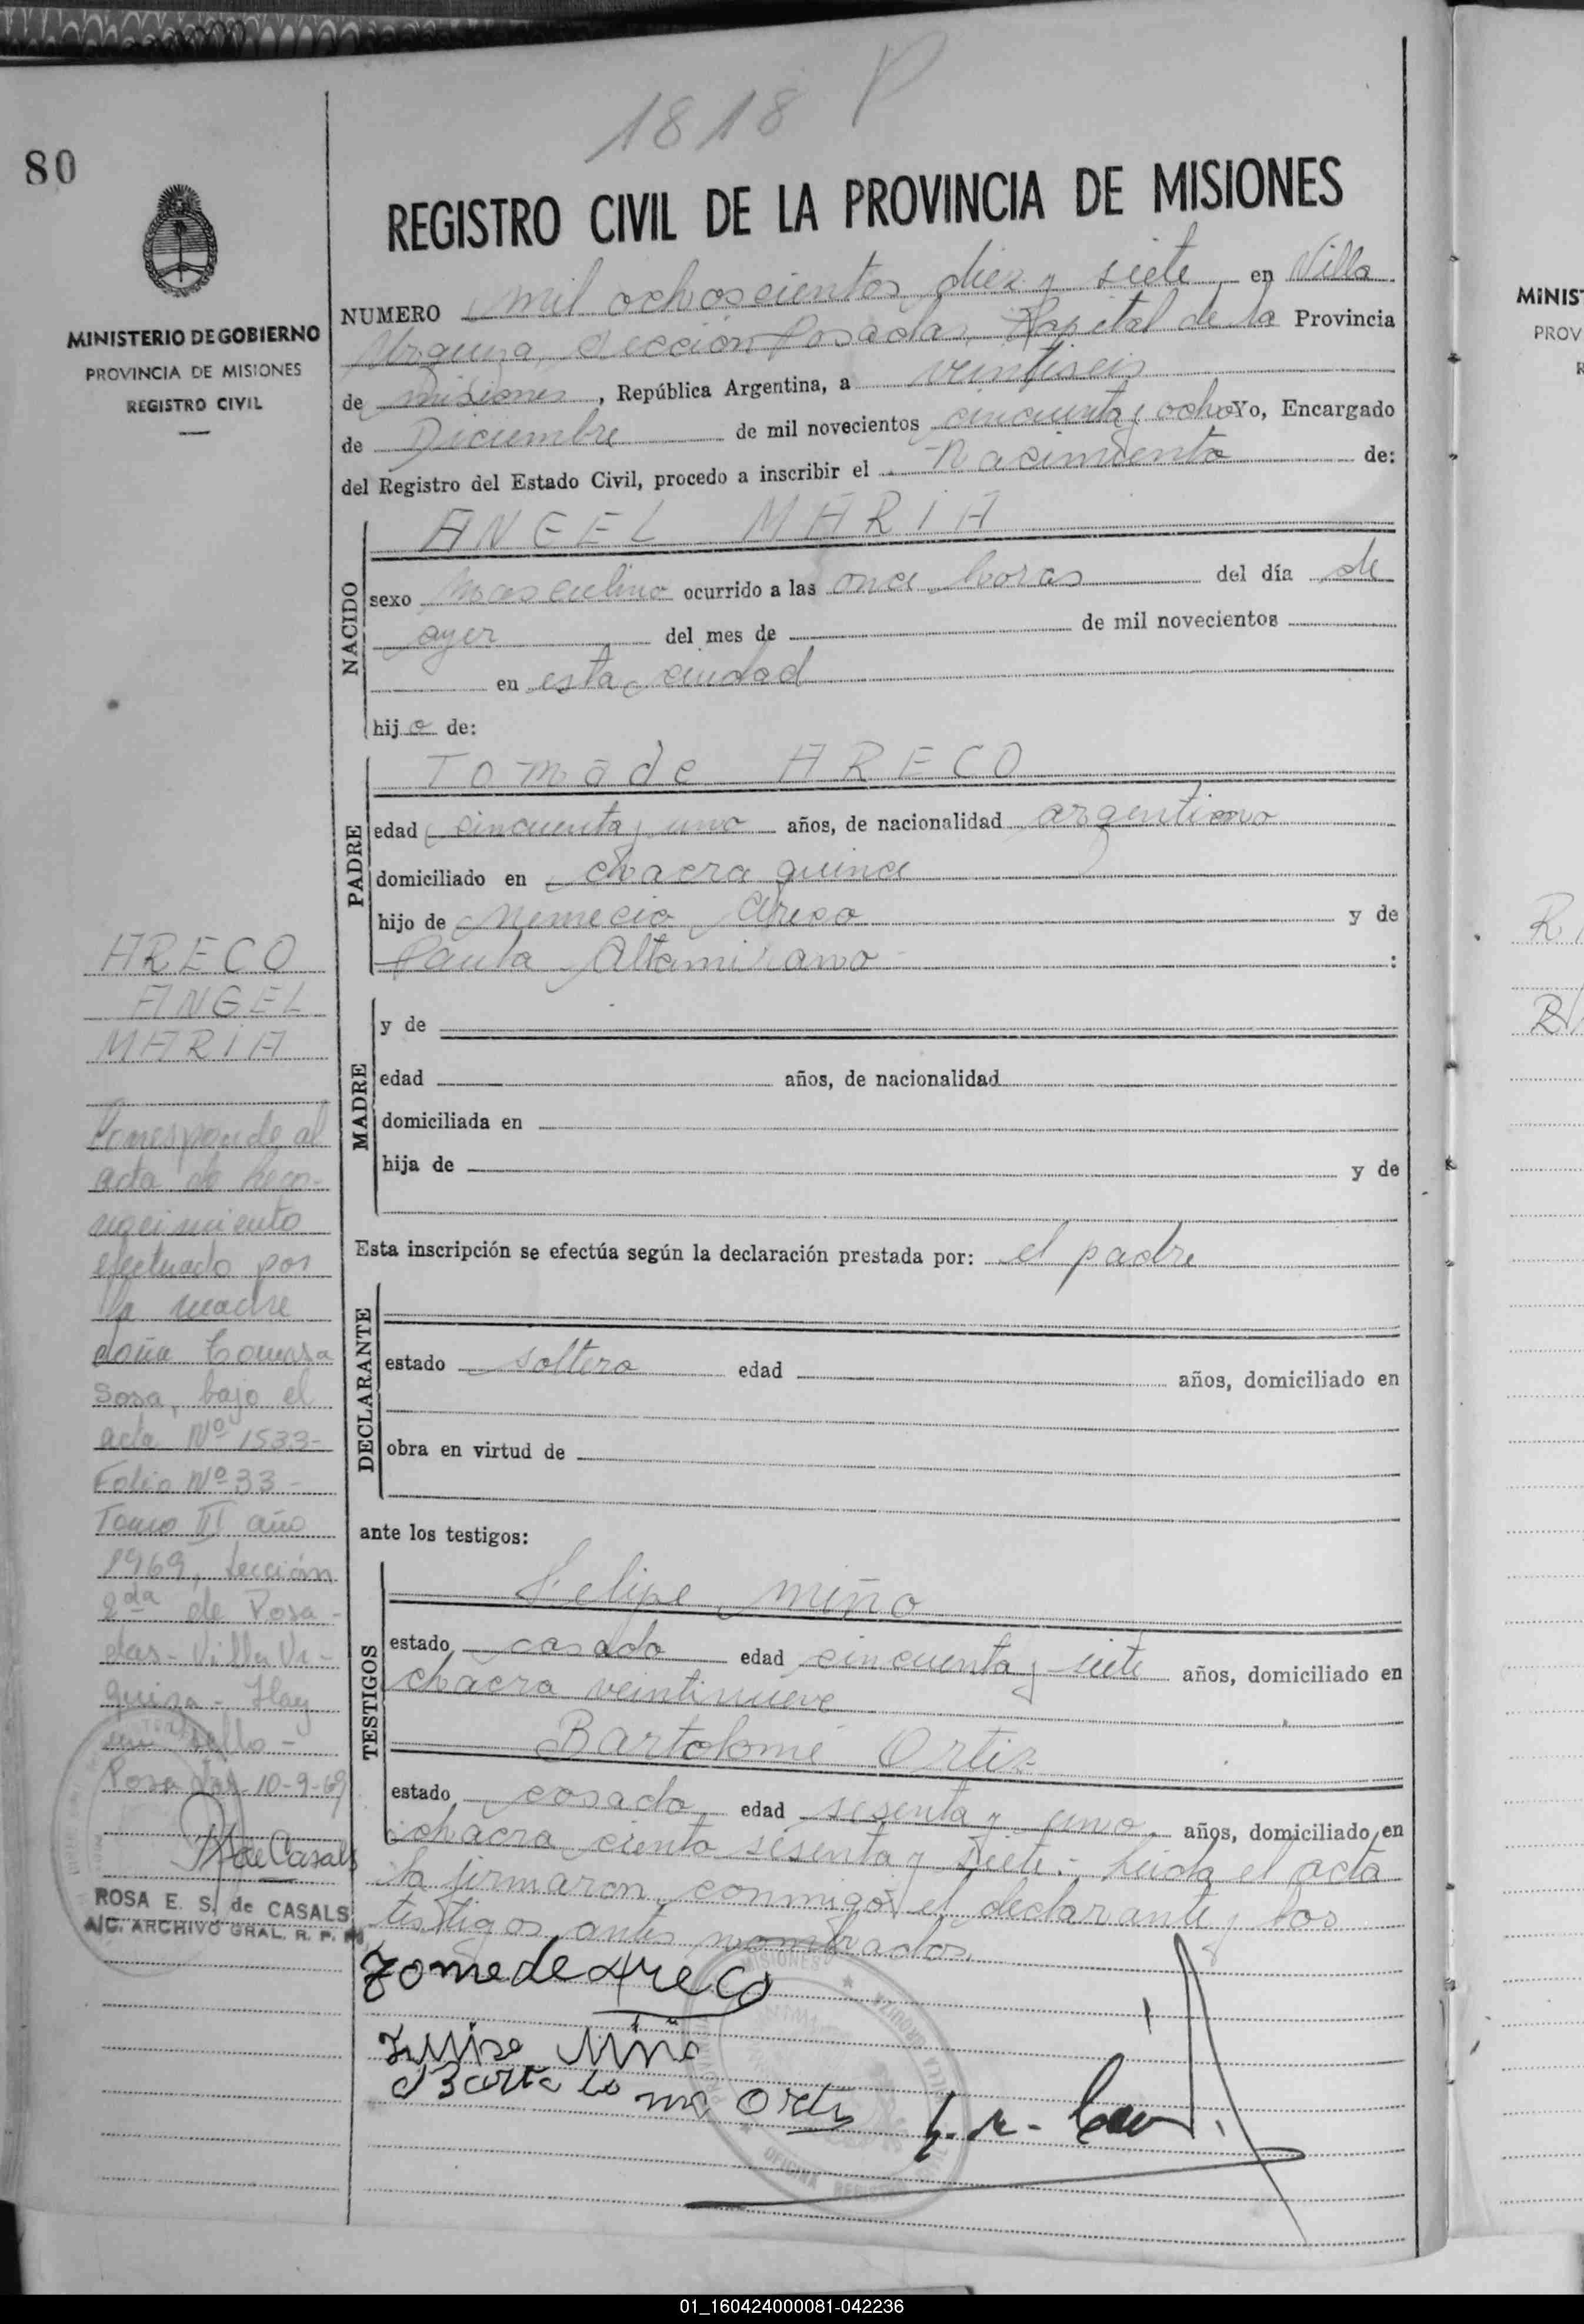 1818 P
80
REGISTRO CIVIL DE LA PROVINCIA DE MISIONES
MINISTERIO DE GOBIERNO
PROVINCIA DE MISIONES
REGISTRO CIVIL
NUMERO mil ochoscientos diez y siete en Villa
Urquiza, Sección Posadas, Capital de la Provincia
de Misiones, República Argentina, a veintiseis
de Diciembre de mil novecientos cincuenta y ocho Yo, Encargado
del Registro del Estado Civil, procedo a inscribir el Nacimiento de:
NACIDO
ANGEL MARIA
sexo masculino ocurrido a las once horas del día de
ayer del mes de de mil novecientos
en esta ciudad
hijo de:
PADRE
Tomade ARECO
edad cincuenta y uno años, de nacionalidad argentino
domiciliado en chacra quince
hijo de Nemecio Areco y de
Paula Altamirano :
MADRE
y de
edad años, de nacionalidad
domiciliada en
hija de y de
Esta inscripción se efectúa según la declaración prestada por: el padre
DECLARANTE
estado soltero edad años, domiciliado en
obra en virtud de
ante los testigos:
TESTIGOS
Felipe Miño
estado casado edad cincuenta y siete años, domiciliado en
chacra veintinueve
Bartolomé Ortiz
estado casado edad sesenta y uno años, domiciliado en
chacra ciento sesenta y siete.- Leida el acta
la firmaron conmigo el declarante y los
testigos antes nombrados.
Tomede Areco
Felipe Miño
Bartolome Ortiz
ARECO
ANGEL
MARIA
Corresponde al
acta de Reco-
nocimiento
efectuado por
la madre
doña Tomasa
Sosa, bajo el
acta Nº 1533-
Folio Nº 33-
Tomo III año
1969, Sección
2da de Posa-
das- Villa Ur-
quiza- Hay
un sello-
Posadas 10-9-69
R de Casals
ROSA E. S. de CASALS
A/C. ARCHIVO GRAL. R. P.
MISIONES
OFICINA
MINIS
PROV
R
01_160424000081-042236